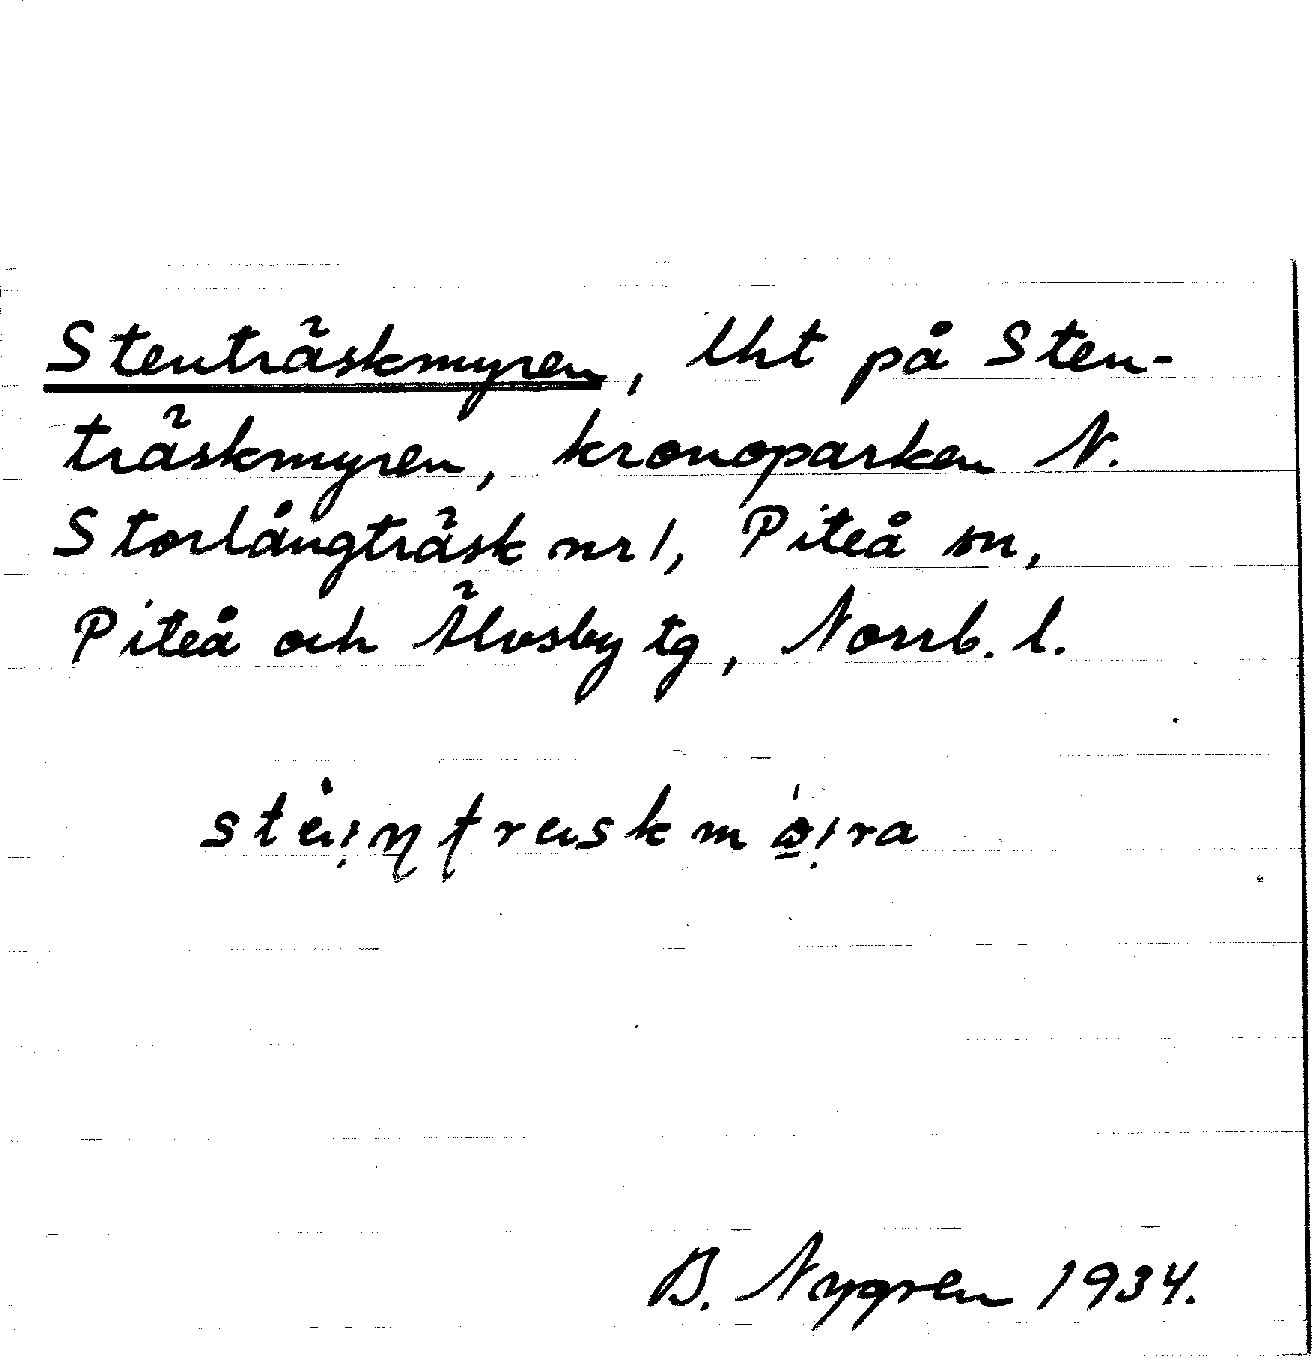 Stenträskmyren, lht på Sten-
träskmyren, kronoparken N.
Storlångträsk nr 1, Piteå sn,
Piteå och Älvsby tg, Norrb. l.
B. Nygren 1934.